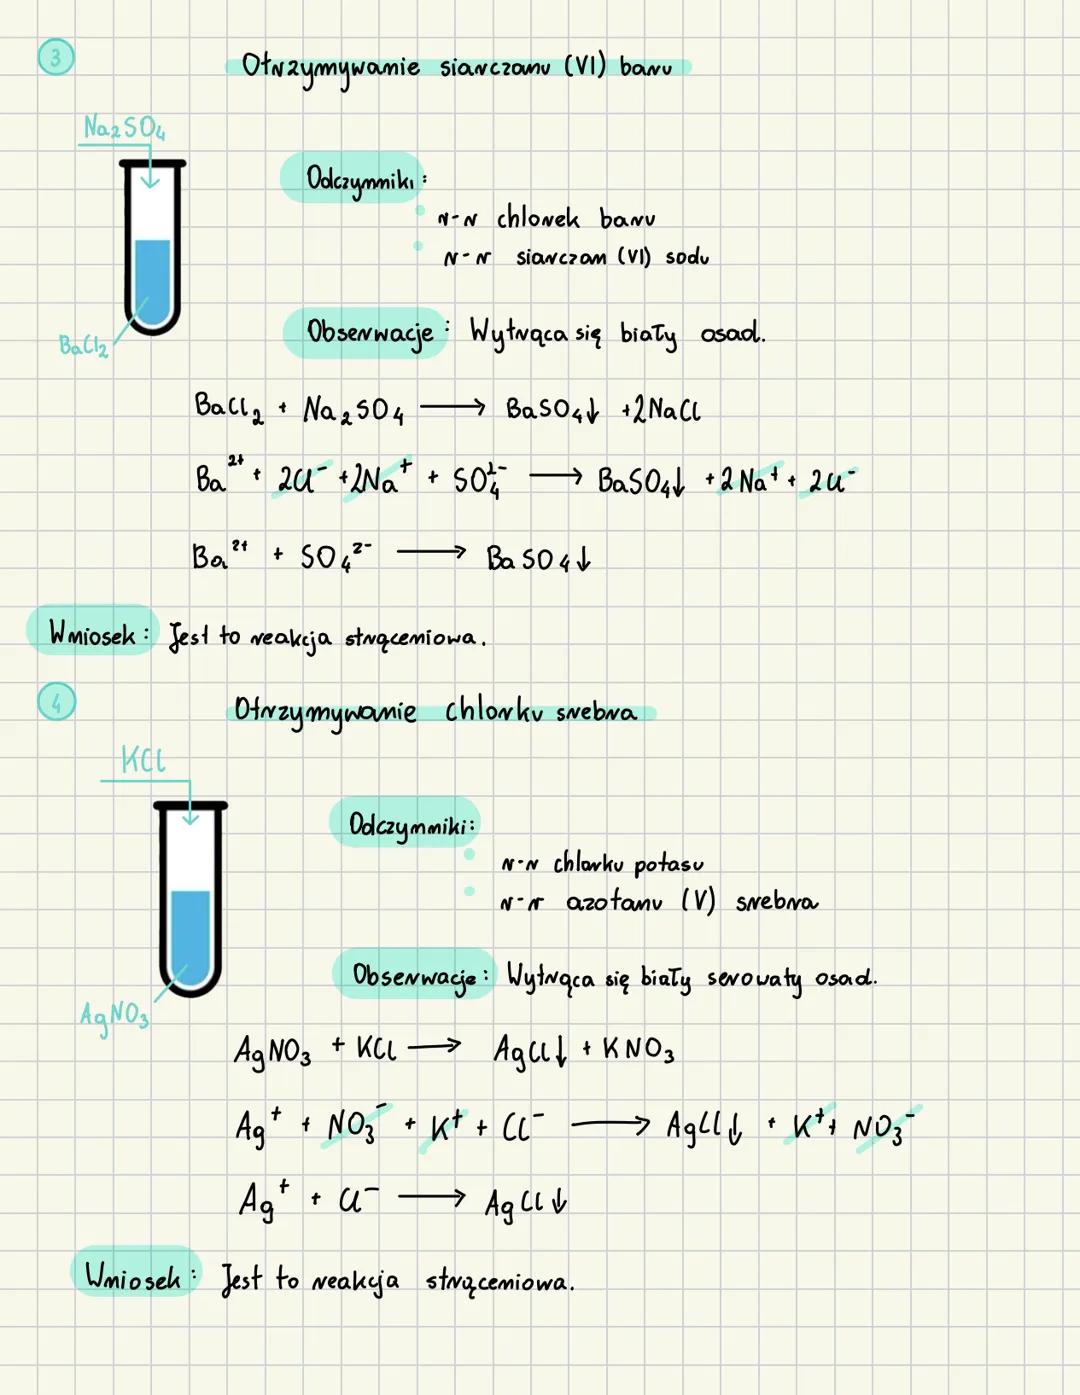 3
Otrzymywanie siarczanu (VI) baru
Na₂SO₄
Odczynniki:
r-r chlorek baru
r-r siarczan (VI) sodu
Obserwacje: Wytrąca się biały osad.
BaCl₂
BaCl₂ + Na₂SO₄ → BaSO₄↓ + 2NaCl
Ba²⁺ + 2Cl⁻ + 2Na⁺ + SO₄²⁻ → BaSO₄↓ + 2Na⁺ + 2Cl⁻
Ba²⁺ + SO₄²⁻ → BaSO₄↓
Wniosek: Jest to reakcja strąceniowa.
4
Otrzymywanie chlorku srebra
KCl
Odczynniki:
r-r chlorku potasu
r-r azotanu (V) srebra
Obserwacje: Wytrąca się biały serowaty osad.
AgNO₃
AgNO₃ + KCl → AgCl↓ + KNO₃
Ag⁺ + NO₃⁻ + K⁺ + Cl⁻ → AgCl↓ + K⁺ + NO₃⁻
Ag⁺ + Cl⁻ → AgCl↓
Wniosek: Jest to reakcja strąceniowa.